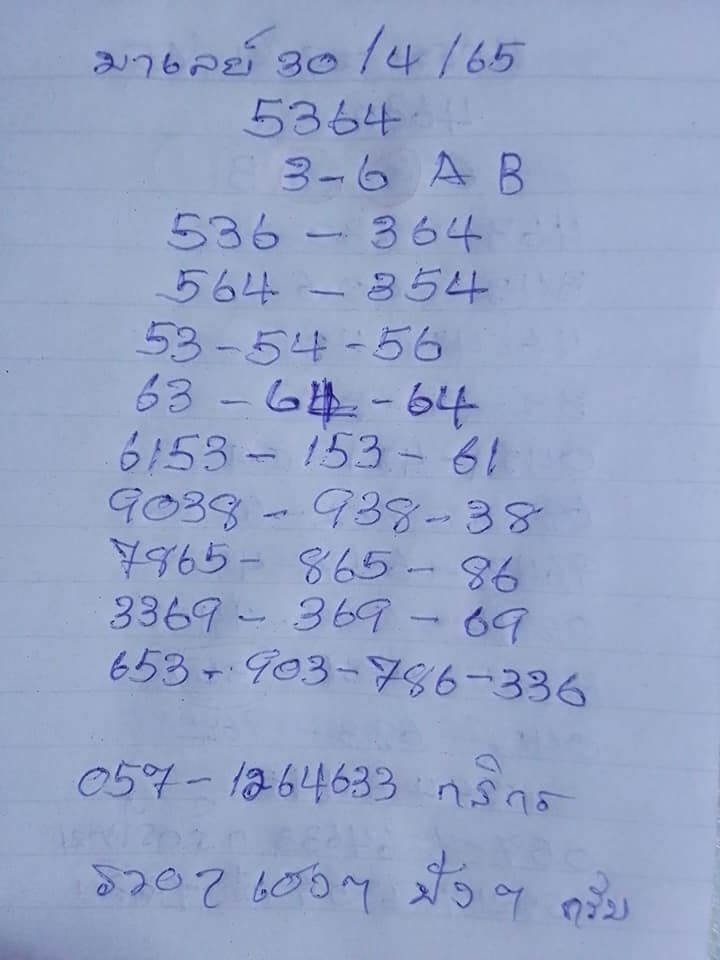 มาเลย์ 30/4/65
5364
3-6 A B
536 - 364
564 - 354
53-54-56
63 - 64 - 64
6153 - 153 - 61
9038 - 938-38
7865 - 865 - 86
3369 - 369 - 69
653 - 903-786-336
057-1264633 กสิกร
รวยๆ เฮงๆ ปังๆ ครับ